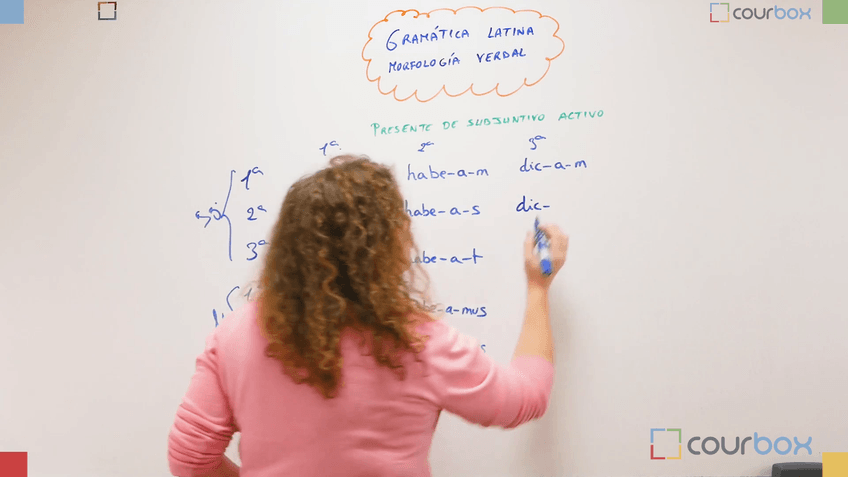 courbox
GRAMÁTICA LATINA
MORFOLOGÍA VERBAL
PRESENTE DE SUBJUNTIVO ACTIVO
1ª 2ª 3ª
1ª habe-a-m dic-a-m
2ª habe-a-s dic-
3ª habe-a-t
-a-mus
courbox